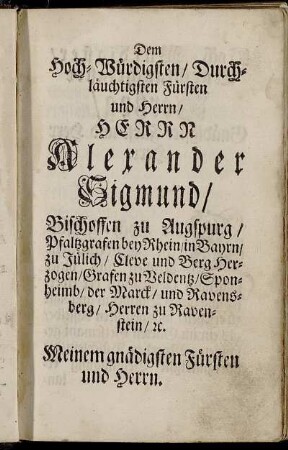 Dem
Hoch-Würdigsten/ Durch-
läuchtigsten Fürsten
und Herrn/
HERRN
Alexander
Sigmund/
Bischoffen zu Augspurg/
Pfaltzgrafen bey Rhein/ in Bayrn/
zu Jülich/ Cleve und Berg Her-
zogen/ Grafen zu Veldentz/ Spon-
heimb/ der Marck/ und Ravens-
berg/ Herren zu Raven-
stein/ ꝛc.
Meinem gnädigsten Fürsten
und Herrn.